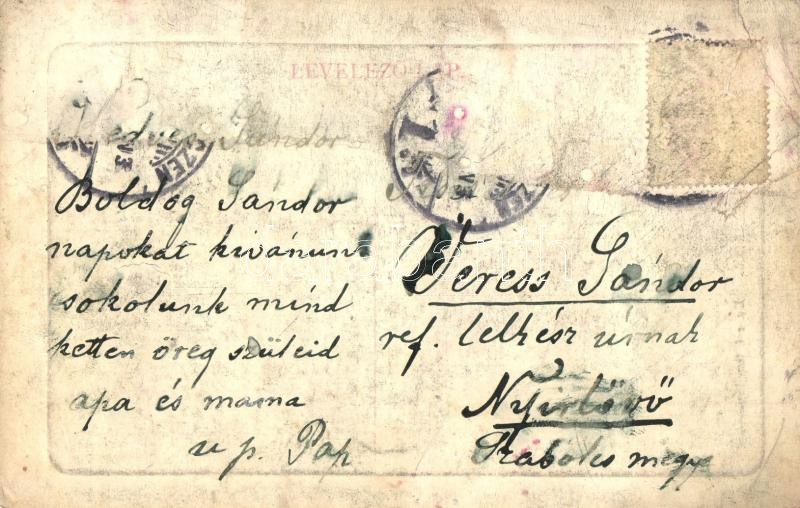 LEVELEZŐ-LAP.
Kedves Sándor
Boldog Sándor
napokat kivánunk
sokolunk mind
ketten öreg szüleid
apa és mama
u p. Pap
Veress Sándor
ref. lelkész úrnak
Nyirlövő
Szabolcs megye